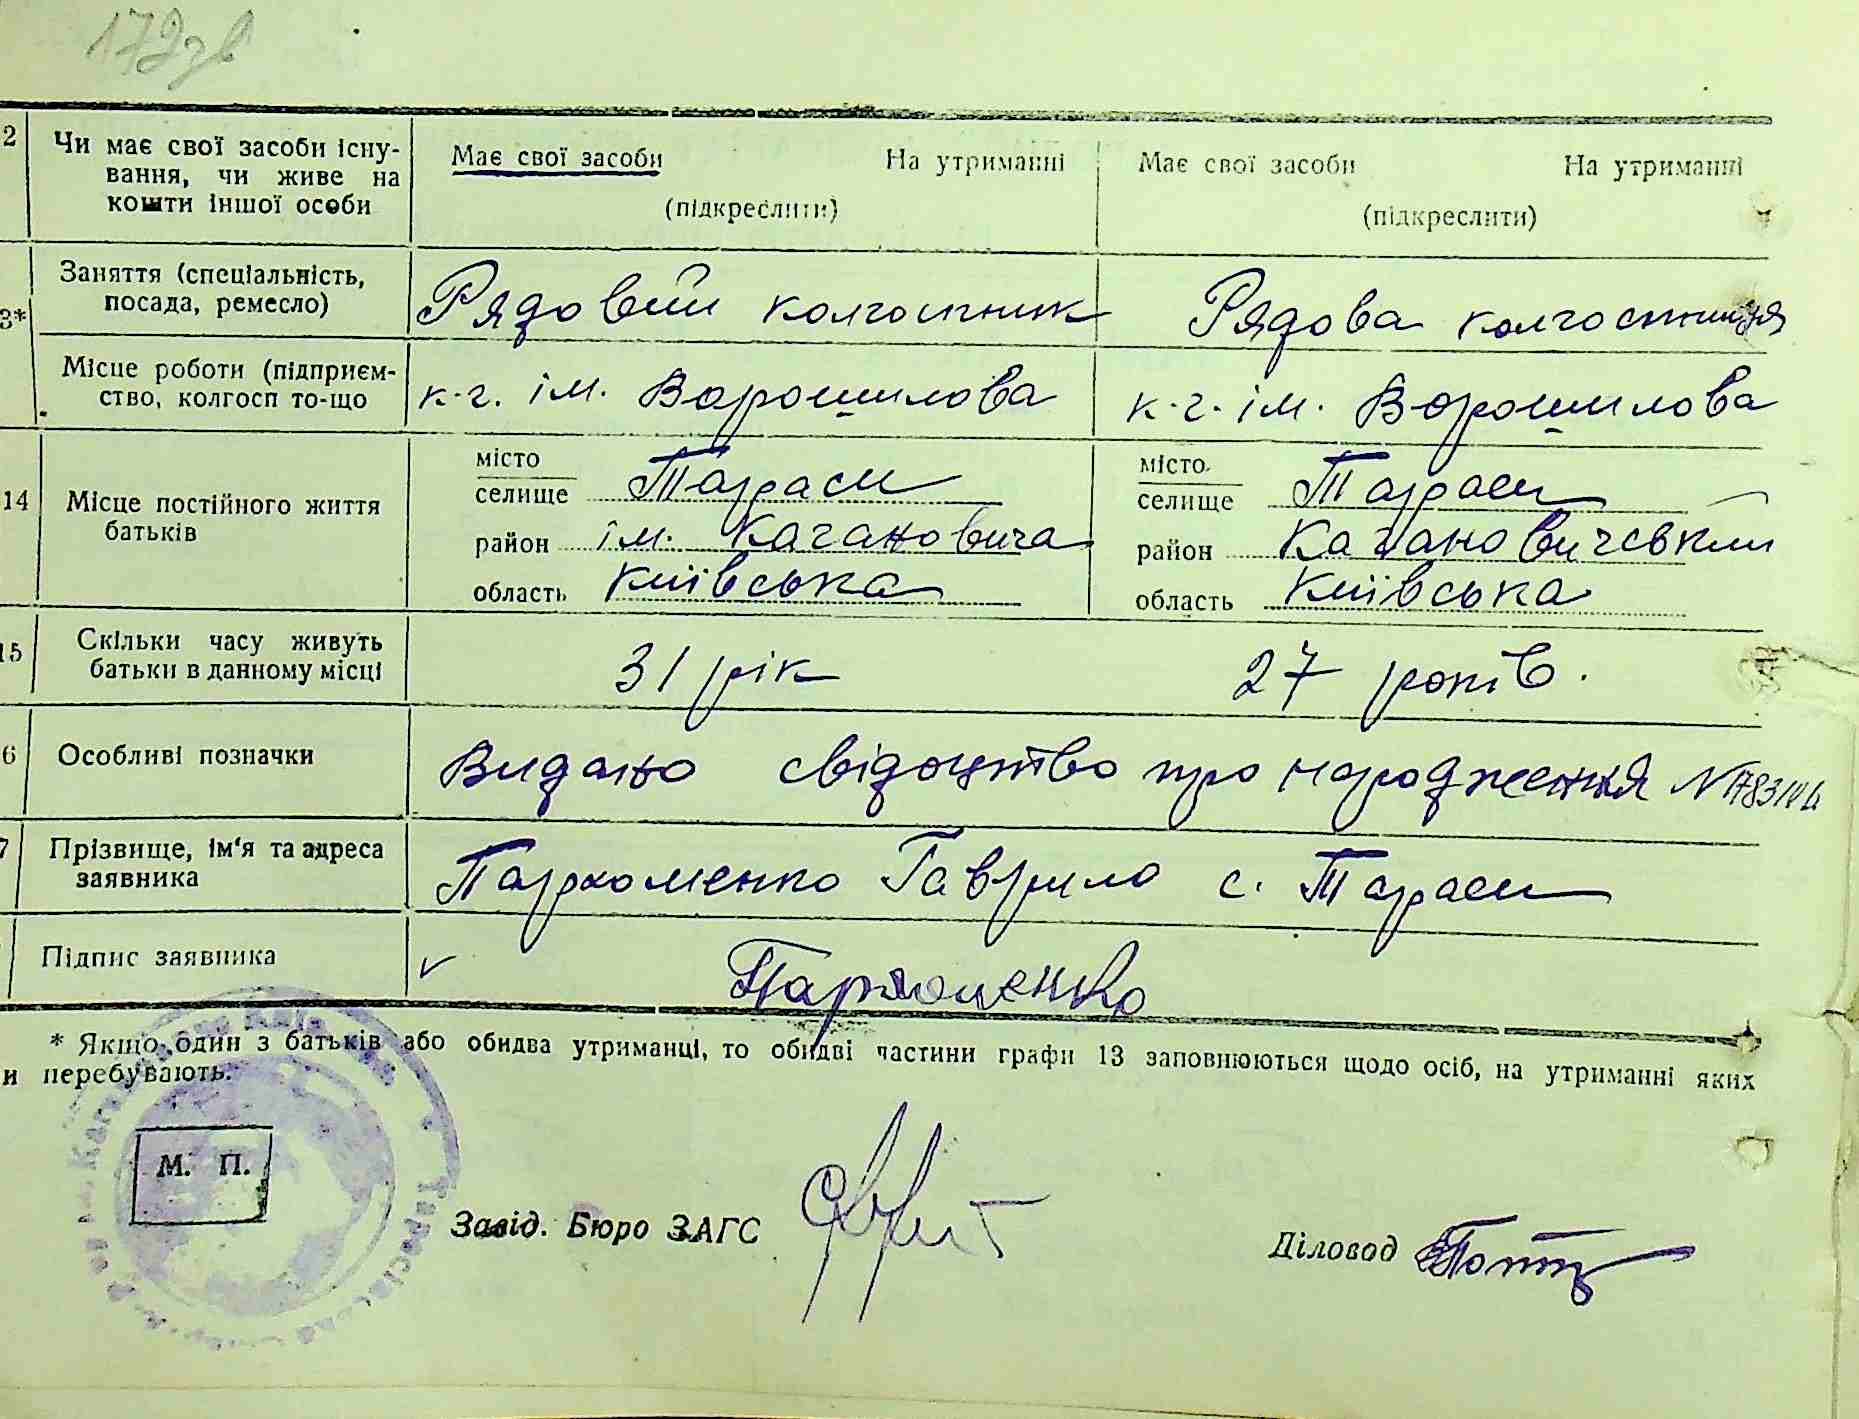 172зв
2 Чи має свої засоби існу-
вання, чи живе на
кошти іншої особи
Має свої засоби На утриманні
(підкреслити)
Має свої засоби На утриманні
(підкреслити)
3* Заняття (спеціальність,
посада, ремесло)
Рядовий колгоспник
Рядова колгоспниця
Місце роботи (підприєм-
ство, колгосп то-що
к-г. ім. Ворошилова
к-г. ім. Ворошилова
14 Місце постійного життя
батьків
місто
селище Тараси
район ім. Кагановича
область Київська
місто
селище Тараси
район Кагановичевський
область Київська
15 Скільки часу живуть
батьки в данному місці
31 рік
27 років.
6 Особливі позначки
Видано свідоцтво про народження №
7 Прізвище, ім'я та адреса
заявника
Пархоменко Гаврило с. Тараси
Підпис заявника
Пархоменко
* Якщо один з батьків або обидва утриманці, то обидві частини графи 13 заповнюються щодо осіб, на утриманні яких
и перебувають.
М. П.
Завід. Бюро ЗАГС
Діловод